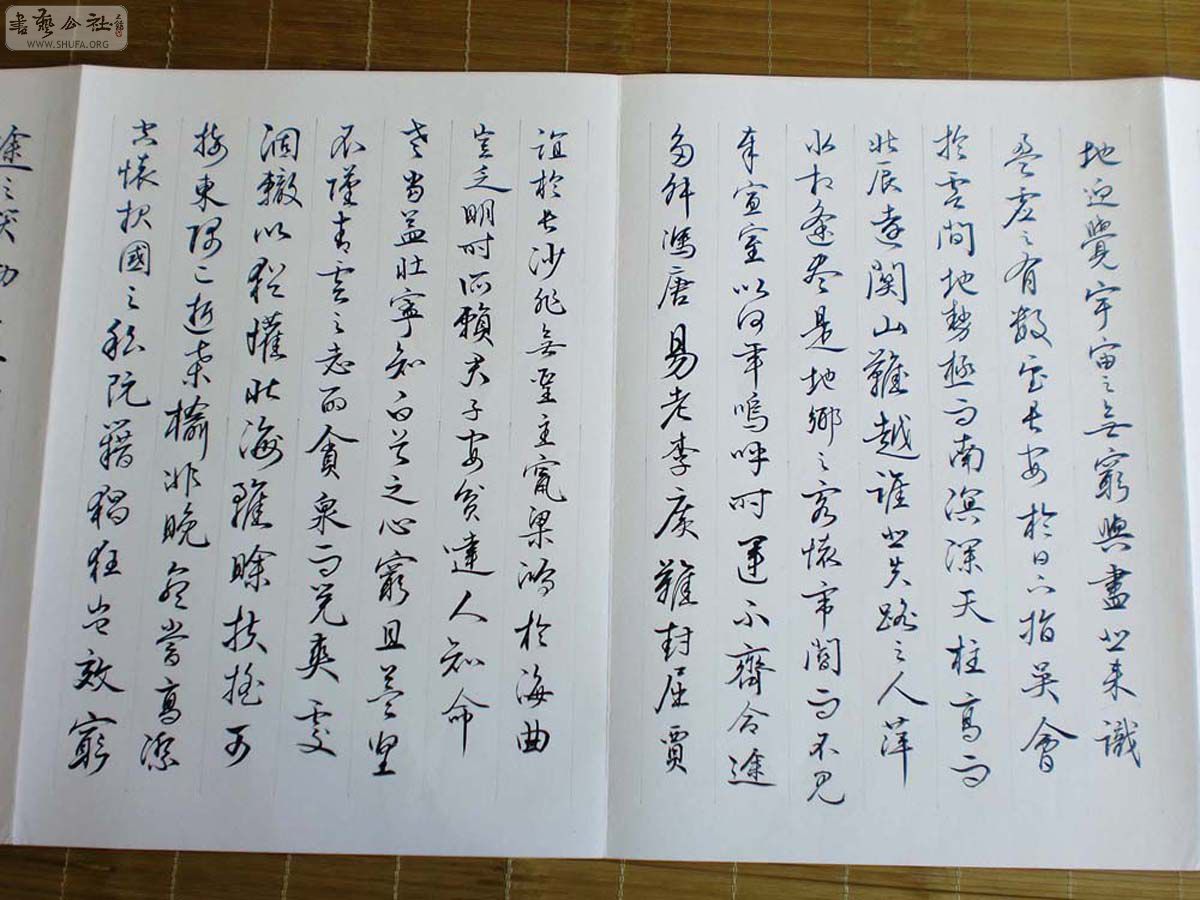 書藝公社
WWW.SHUFA.ORG
地迥覺宇宙之無窮興盡悲来識
盈虛之有數望長安於日下指吳會
於雲間地勢極而南溟深天柱高而
北辰遠關山難越誰悲失路之人萍
水相逢盡是他鄉之客懷帝閽而不見
奉宣室以何年嗚呼時運不齊命途
多舛馮唐易老李廣難封屈賈
誼於長沙非無聖主竄梁鴻於海曲
豈乏明時所賴君子安貧達人知命
老當益壯寧知白首之心窮且益堅
不墜青雲之志酌貪泉而覺爽處
涸轍以猶懽北海雖賒扶搖可
接東隅已逝桑榆非晚孟嘗高潔
空懷報國之私阮籍猖狂豈效窮
途之哭勃